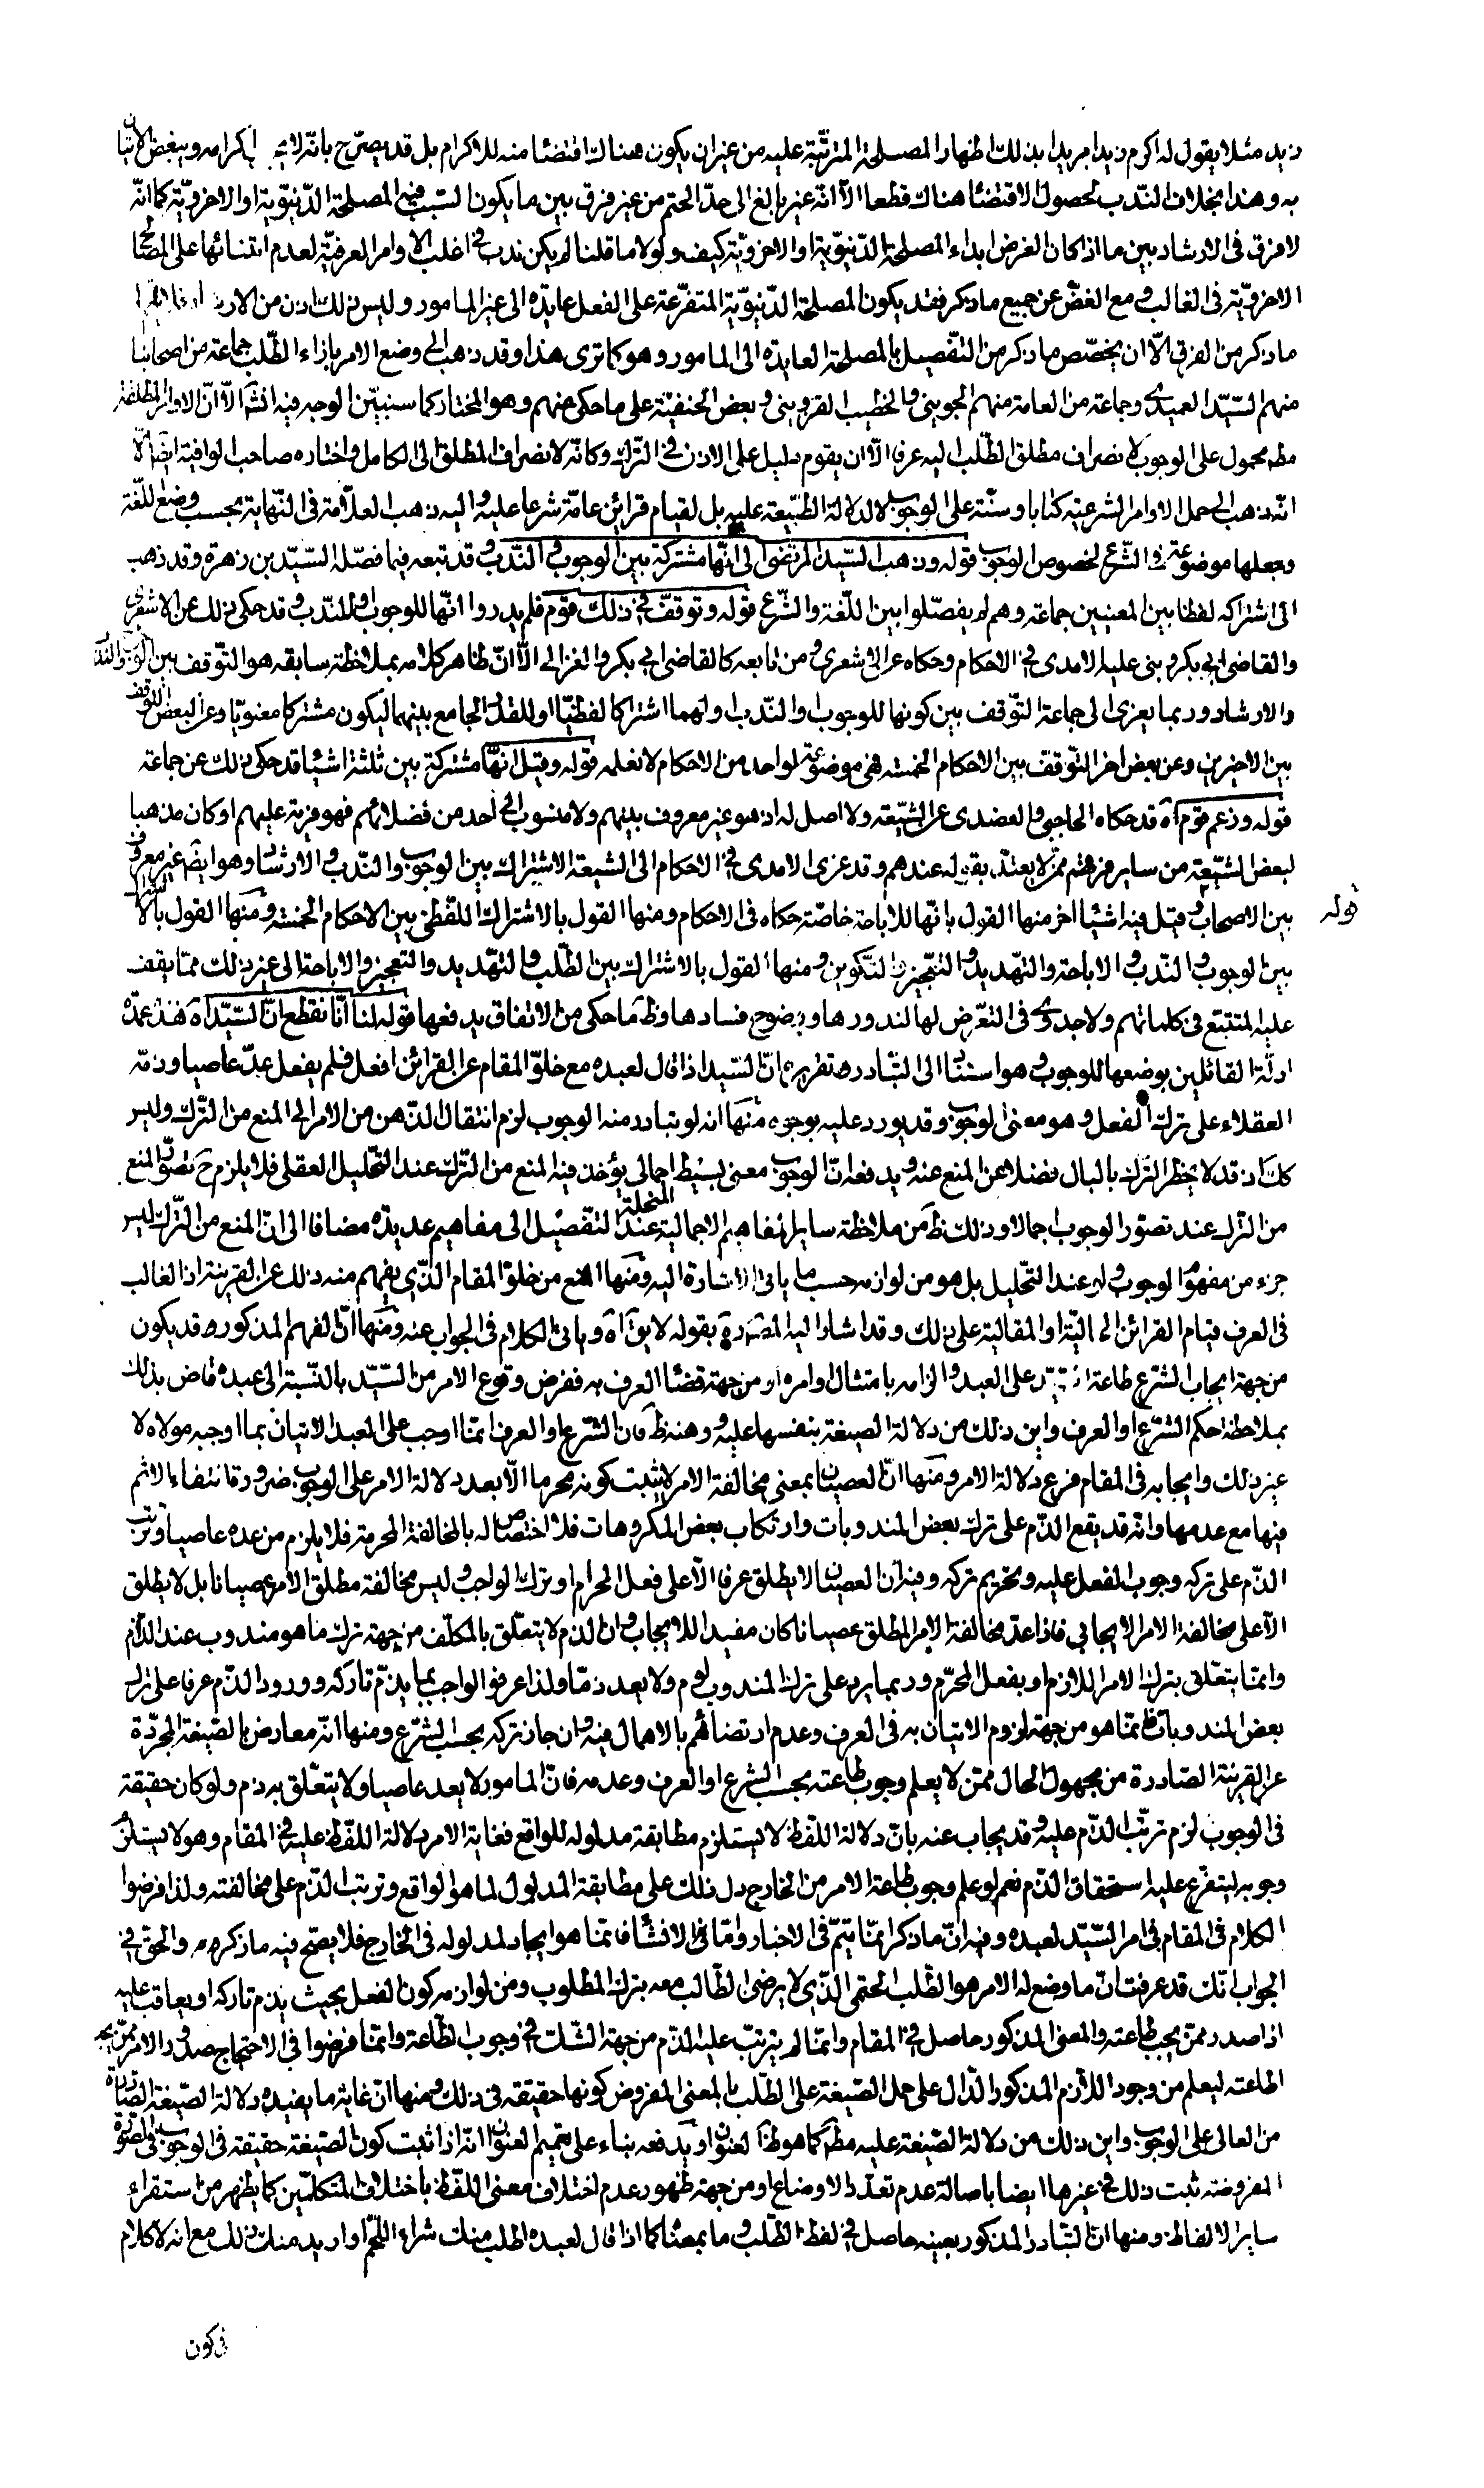 زيد مثلا يقول له اكرم زيدا مريدا بذلك اظهار المصلحة المترتبة عليه من غير ان يكون هناك اقتضاء منه للاكرام بل قد يصرّح بانّه لا يحب اكرامه ويبغض الاتيان
به وهذا بخلاف الندب لحصول الاقتضاء هناك قطعا الّا انّه غير بالغ الى حدّ الحتم من غير فرق بين ما يكون السّبب فيه المصلحة الدّنيويّة او الاخرويّة كما انّه
لا فرق في الارشاد بين ما اذا كان الغرض ابداء المصلحة الدّنيويّة او الاخرويّة كيف ولولا ما قلنا لم يكن ندب في اغلب الاوامر العرفيّة لعدم ابتنائها على المصالح
الاخرويّة في الغالب ومع الغضّ عن جميع ما ذكر فقد يكون المصلحة الدّنيويّة المتفرّعة على الفعل عايدة الى غير المامور وليس ذلك اذن من
ما ذكر من الفرق الّا ان يخصّص ما ذكر من التفصيل بالمصلحة العايدة الى المامور وهو كما ترى هذا وقد ذهب الى وضع الامر بازاء الطّلب جماعة من اصحابنا
منهم السّيّد العميدى وجماعة من العامة منهم الجوينى والخطيب القزوينى وبعض الحنفيّة على ما حكى عنهم وهو المختار كما سنبيّن الوجه فيه انشآ الّا انّ الاوامر المطلقة
مط محمول على الوجوب لانصراف مطلق الطّلب اليه عرفا الّا ان يقوم دليل على الاذن في الترك وكانّه لانصراف المطلق الى الكامل واختاره صاحب الوافية ايضا الّا
انّه ذهب الى حمل الاوامر الشرعيّة كتابا وسنّة على الوجوب لا لدلالة الصّيغة عليه بل لقيام قرائن عامّة شرعا عليه واليه ذهب العلّامة في النّهاية بحسب وضع اللّغة
وجعلها موضوعة في الشّرع لخصوص الوجوب قوله وذهب السّيّد المرتضى الى انّها مشتركة بين الوجوب والنّدب وقد تبعه فيما فصّله السّيّد بن زهرة وقد ذهب
الى اشتراكه لفظا بين المعنيين جماعة وهم لم يفصّلوا بين اللّغة والشّرع قوله وتوقفّ في ذلك قوم فلم يدروا انّها للوجوب او للندب وقد حكى ذلك عن الاشعرى
والقاضى ابى بكر وبنى عليه الامدى في الاحكام وحكاه عن الاشعرى ومن تابعه كالقاضى ابى بكر والغزالى الّا انّ ظاهر كلامه بملاحظة سابقه هو التّوقف بين الوجوب والندب
والارشاد وربما يعزى الى جماعة التّوقف بين كونها للوجوب او النّدب او لهما اشتراكا لفظيّا او للقدر الجامع بينهما ليكون مشتركا معنويّا وعن البعض التوقف
بين الاخيرين وعن بعض اخر التّوقف بين الاحكام الخمسة فهى موضوعة لواحد من الاحكام لا نعلمه قوله وقيل انّها مشتركة بين ثلثة اشياء قد حكى ذلك عن جماعة
قوله وزعم قوم آه قد حكاه الحاجبى والعضدى عن الشّيعة ولا اصل له اذ هو غير معروف بينهم ولا منسوب الى احد من فضلائهم فهو فرية عليهم او كان مذهبا
لبعض الشّيعة من ساير فرقهم ممّن لا يعتدّ بقوله عندهم وقد عزى الامدى في الاحكام الى الشيعة الاشتراك بين الوجوب والنّدب والارشاد وهو ايضا غير معروف
بين الاصحاب وقيل فيه اشياء اخر منها القول بانّها للاباحة خاصّة حكاه في الاحكام ومنها القول بالاشتراك اللفظى بين الاحكام الخمسة ومنها القول بالاشتراك
بين الوجوب والنّدب والاباحة والتهديد والتعجيز والتكوين ومنها القول بالاشتراك بين الطّلب والتهديد والتعجيز والاباحة الى غير ذلك ممّا يقف
عليه المتتبّع في كلماتهم ولا جدوى في التعرّض لها لندورها ووضوح فسادها وظ ما حكى من الاتفاق يدفعها قوله لنا انّا نقطع انّ السّيّد آه هذه عمدة
ادلّة القائلين بوضعها للوجوب وهو استناد الى التّبادر وتقريره انّ السّيد اذا قال لعبده مع خلوّ المقام عن القرائن افعل فلم يفعل عدّ عاصيا وذمّه
العقلاء على ترك الفعل وهو معنى الوجوب وقد يورد عليه بوجوه منها انه لو تبادر منه الوجوب لزم انتقال الذّهن من الامر الى المنع من الترك وليس
كك اذ قد لا يخطر الترك بالبال فضلا عن المنع عنه ويدفعه انّ الوجوب معنى بسيط اجمالى يؤخذ فيه المنع من الترك عند التّحليل العقلى فلا يلزم ح تصوّر المنع
من الترك عند تصوّر الوجوب اجمالا وذلك ظ من ملاحظة ساير المفاهيم الاجمالية المنحلة عند التفصيل الى مفاهيم عديدة مضافا الى انّ المنع من الترك ليس
جزء من مفهوم الوجوب ولو عند التّحليل بل هو من لوازمه حسب ما ياتى الاشارة اليه ومنها المنع من خلوّ المقام الّذى يفهم منه ذلك عن القرينة اذ الغالب
في العرف قيام القرائن الحالية او المقالية على ذلك وقد اشار اليه المصنف ره بقوله لا يق آه وياتى الكلام في الجواب عنه ومنها انّ الفهم المذكور قد يكون
من جهة ايجاب الشّرع طاعة السّيّد على العبد والزامه بامتثال اوامره او من جهة قضاء العرف به ففرض وقوع الامر من السّيّد بالنّسبة الى عبده قاض بذلك
بملاحظة حكم الشّرع او العرف واين ذلك من دلالة الصيغة بنفسها عليه ووهنه ظ فانّ الشّرع او العرف انّما اوجب على العبد الاتيان بما اوجبه مولاه لا
غير ذلك وايجابه في المقام فرع دلالة الامر ومنها انّ العصيان بمعنى مخالفة الامر لا يثبت كونه محرما الّا بعد دلالة الامر على الوجوب ضرورة انتفاء الاثم
فيها مع عدمها وانّه قد يقع الذّم على ترك بعض المندوبات وارتكاب بعض المكروهات فلا اختصاص له بالمخالفة المحرمة فلا يلزم من عده عاصيا وترتب
الذّم على تركه وجوب الفعل عليه وتحريم تركه وفيه انّ العصيان لا يطلق عرفا الّا على فعل الحرام او ترك الواجب وليس مخالفة مطلق الامر عصيانا بل لا يطلق
الّا على مخالفة الامر الايجابي فاذا عدّ مخالفة الامر المطلق عصيانا كان مفيدا للايجاب وانّ الذم لا يتعلّق بالمكلّف من جهة ترك ما هو مندوب عند الذّام
وانّما يتعلق بترك الامر اللازم او بفعل المحرّم وربما يرد على ترك المندوب لوم ولا يعد ذمّا ولذا عرفوا الواجب بما يذمّ تاركه وورود الذّم عرفا على ترك
بعض المندوبات انّما هو من جهة لزوم الاتيان به في العرف وعدم ارتضائهم بالاهمال فيه وان جاز تركه بحسب الشّرع ومنها انّه معارض بالصّيغة المجرّدة
عن القرينة الصّادرة من مجهول الحال ممّن لا يعلم وجوب طاعته بحسب الشرع او العرف وعدمه فانّ المامور لا يعد عاصيا ولا يتعلّق به ذم ولو كان حقيقة
في الوجوب لزم ترتّب الذّم عليه وقد يجاب عنه بانّ دلالة اللّفظ لا يستلزم مطابقة مدلوله للواقع فغاية الامر دلالة اللّفظ عليه في المقام وهو لا يستلزم
وجوبه ليتفرّع عليه استحقاق الذّم نعم لو علم وجوب طاعة الامر من الخارج دل ذلك على مطابقة المدلول لما هو الواقع وترتب الذّم على مخالفته ولذا فرضوا
الكلام في المقام في امر السّيّد لعبده وفيه انّ ما ذكر انّما يتمّ في الاخبار وامّا في الانشاء فانّما هو ايجاد لمدلوله في الخارج فلا يصحّ فيه ما ذكره والحق في
الجواب انّك قد عرفت انّ ما وضع له الامر هو الطّلب الحتمى الّذى لا يرضى الطّالب معه بترك المطلوب ومن لوازمه كون الفعل بحيث يذم تاركه او يعاقب عليه
اذا صدر ممّن يجب طاعته والمعنى المذكور حاصل في المقام وانّما لم يترتّب عليه الذّم من جهة الشّك في وجوب الطّاعة وانّما فرضوا في الاحتجاج صدور الامر ممّن يجب
اطاعته ليعلم من وجود اللّازم المذكور الدّال على حمل الصّيغة على الطّلب بالمعنى المفروض كونها حقيقة في ذلك ومنها انّ غاية ما يفيده دلالة الصّيغة الصّادرة
من العالى على الوجوب واين ذلك من دلالة الصّيغة عليه مط كما هو ظ العنوان ويدفعه بناء على تعميم العنوان انّه اذا ثبت كون الصّيغة حقيقة في الوجوب في الصّورة
المفروضة ثبت ذلك في غيرها ايضا باصالة عدم تعدّد الاوضاع او من جهة ظهور عدم اختلاف معنى اللّفظ باختلاف المتكلّمين كما يظهر من استقراء
ساير الالفاظ ومنها انّ التّبادر المذكور بعينه حاصل في لفظ الطّلب وما بمعناه كما اذا قال لعبده اطلب منك شراء اللّحم او اريد منك ذلك مع انّه لا كلام
قوله
في كون